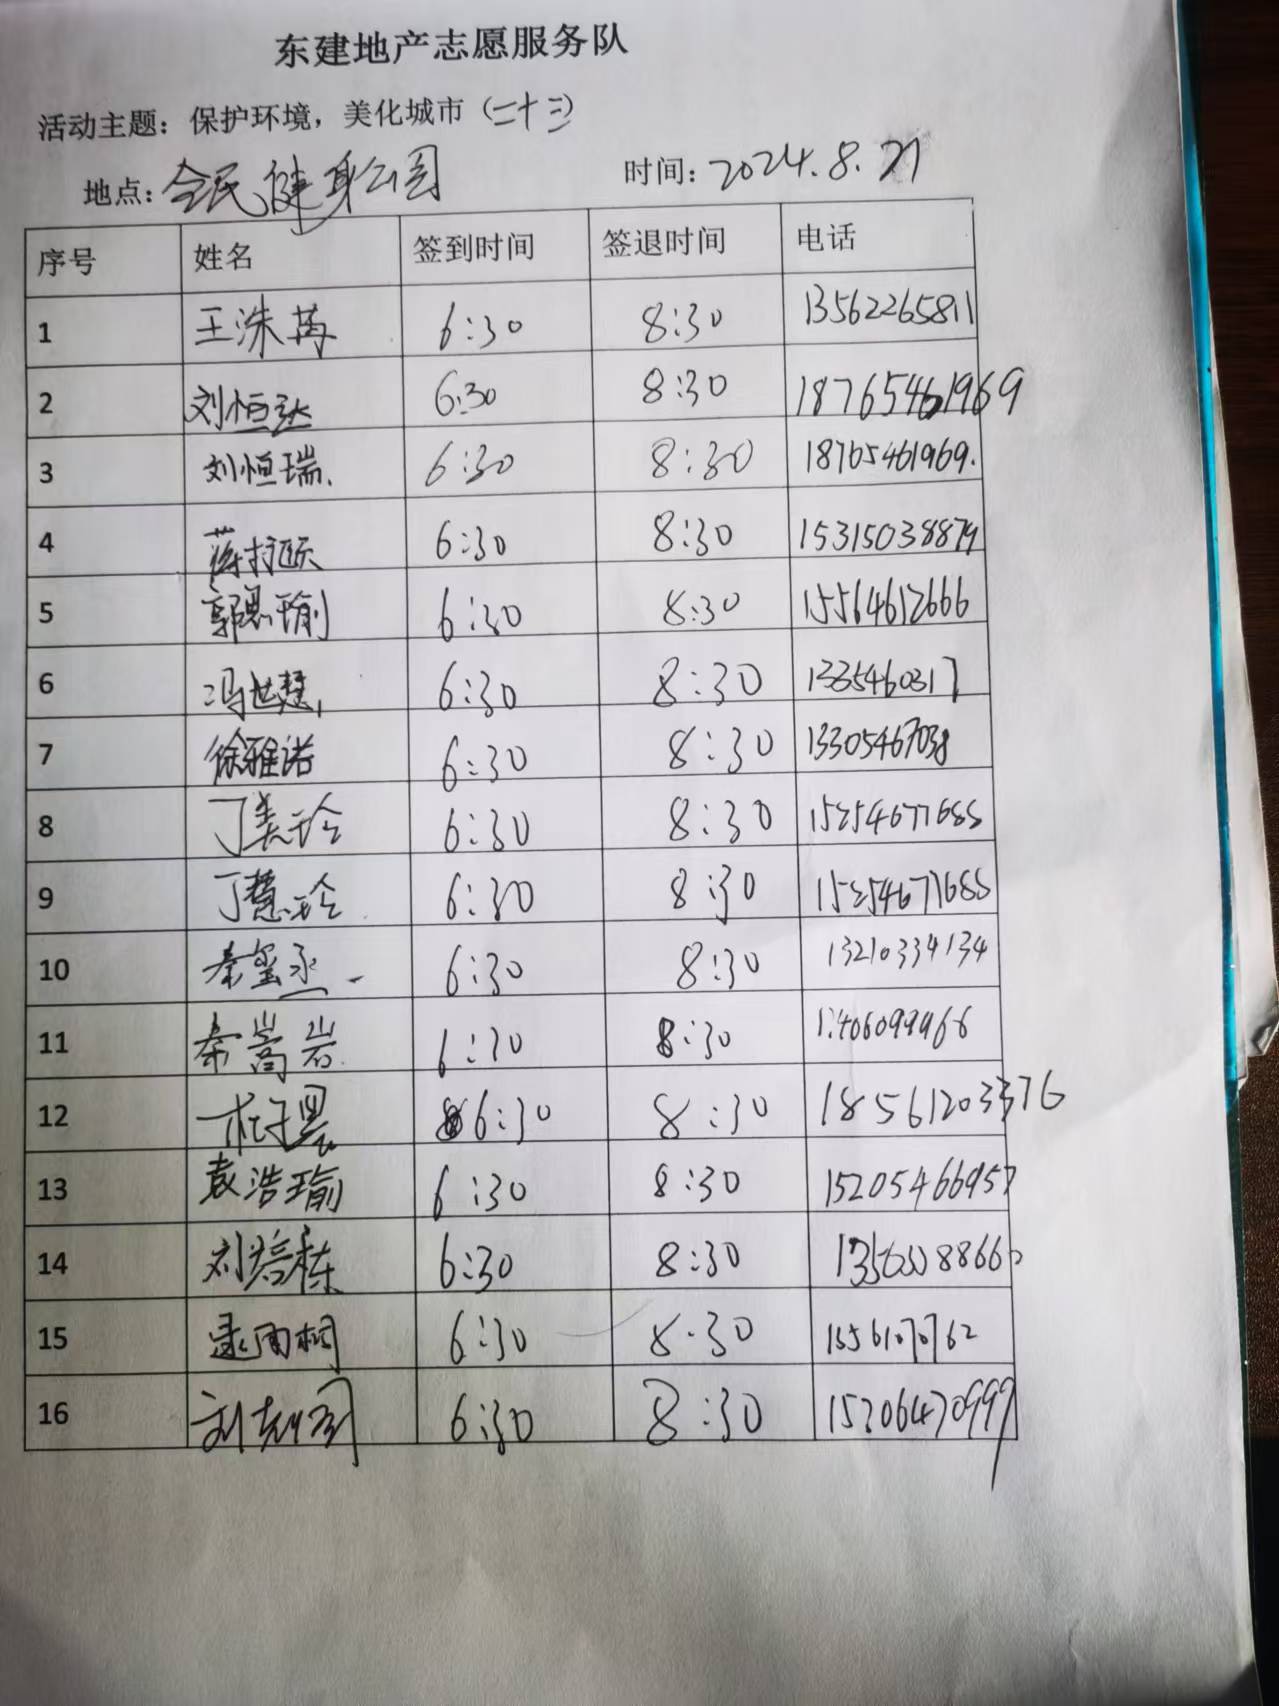 东建地产志愿服务队
活动主题：保护环境，美化城市（二十三）
地点：全民健身公园 时间：2024.8.21
序号 姓名 签到时间 签退时间 电话
1 王洙苒 6:30 8:30 13562265811
2 刘恒达 6:30 8:30 18765461969
3 刘恒瑞. 6:30 8:30 18765461969.
4 6:30 8:30 15315038879
5 郭思瑜 6:30 8:30 15564612666
6 冯世慧 6:30 8:30 1335460317
7 徐雅诺 6:30 8:30 13305467038
8 丁美玲 6:30 8:30 15254677688
9 丁慧玲 6:30 8:30 15254677688
10 秦玺丞 6:30 8:30 13210334134
11 秦嵩岩 6:30 8:30
12 6:30 8:30 18561203376
13 袁浩瑜 6:30 8:30 15205466957
14 刘培栋 6:30 8:30
15 逯雨桐 6:30 8:30
16 6:30 8:30 15206470999